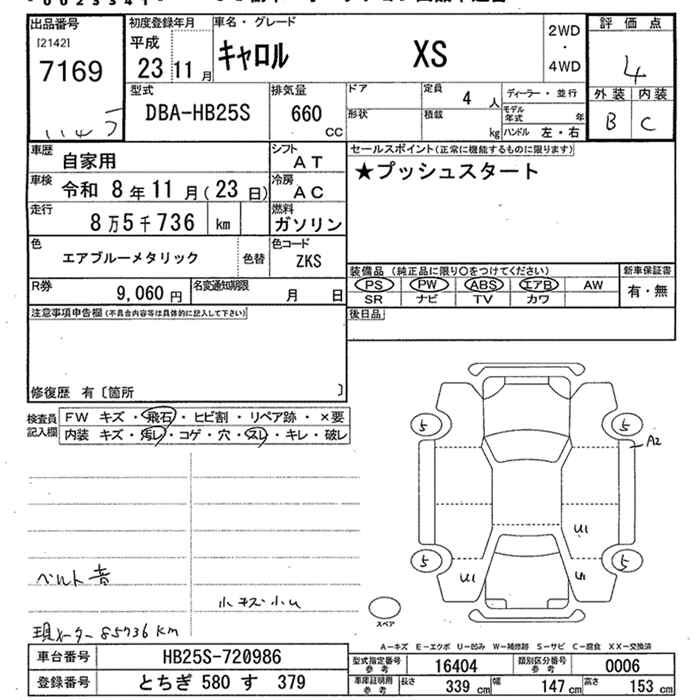 出品番号
[2142]
7169
初度登録年月
平成
23 11 月
車名・グレード
キャロル XS
2WD
・
4WD
評価点
4
外装 内装
B C
型式
DBA-HB25S
排気量
660
CC
ドア
形状
定員
4 人
積載
kg
ディーラー・並行
モデル年式 年
ハンドル 左・右
車歴
自家用
シフト
AT
車検
令和 8年 11月(23日)
冷房
AC
走行
8万5千736 km
燃料
ガソリン
色
エアブルーメタリック
色替
色コード
ZKS
R券
9,060 円
名変通知期限
月 日
セールスポイント(正常に機能するものに限ります)
★プッシュスタート
装備品(純正品に限り○をつけてください)
PS PW ABS エアB AW
SR ナビ TV カワ
新車保証書
有・無
後日品
注意事項申告欄(不具合内容等は具体的に記入して下さい)
修復歴 有〔箇所 〕
検査員記入欄
FW キズ・飛石・ヒビ割・リペア跡・×要
内装 キズ・汚レ・コゲ・穴・スレ・キレ・破レ
5 5
A2
U1
5 5
U1 U1
ベルト音
小キズ小U
現メーター 85736km
スペア
A−キズ E−エクボ U−凹み W−補修跡 S−サビ C−腐食 XX−交換済
車台番号 HB25S-720986
登録番号 とちぎ 580 す 379
型式指定番号 参考 16404
類別区分番号 参考 0006
車庫証明用 参考 長さ 339 cm 幅 147 cm 高さ 153 cm